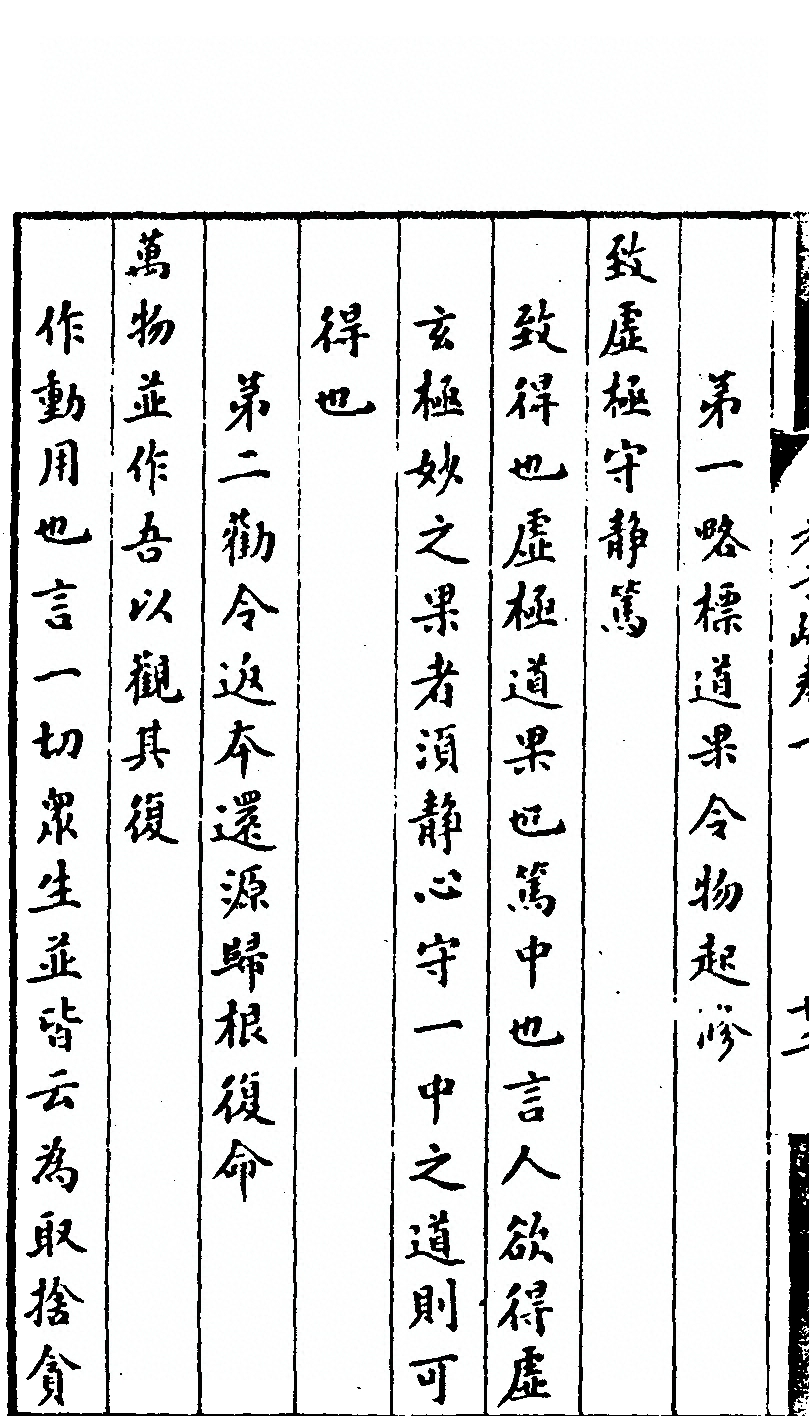 第一略標道果令物起修
致虛極守靜篤
致得也虛極道果也篤中也言人欲得虛
玄極妙之果者須靜心守一中之道則可
得也
第二勸令返本還源歸根復命
萬物並作吾以觀其復
作動用也言一切眾生並皆云為取捨貪